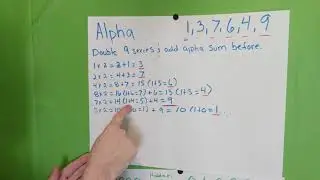 Alpha
1, 3, 7, 6, 4, 9
Double 9 series; add alpha sum before.
1×2 = 2+1 = 3
2×2 = 4+3 = 7
4×2 = 8+7 = 15 (1+5=6)
8×2 = 16 (1+6=7) + 6 = 13 (1+3=4)
7×2 = 14 (1+4=5) + 4 = 9
5×2 = 10 + 9 = 10 (1+0=1